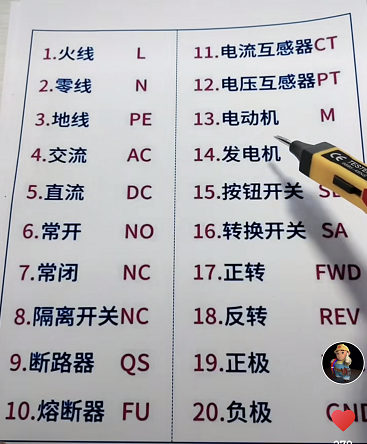 1.火线 L
2.零线 N
3.地线 PE
4.交流 AC
5.直流 DC
6.常开 NO
7.常闭 NC
8.隔离开关NC
9.断路器 QS
10.熔断器 FU
11.电流互感器CT
12.电压互感器PT
13.电动机 M
14.发电机
15.按钮开关
16.转换开关 SA
17.正转 FWD
18.反转 REV
19.正极
20.负极